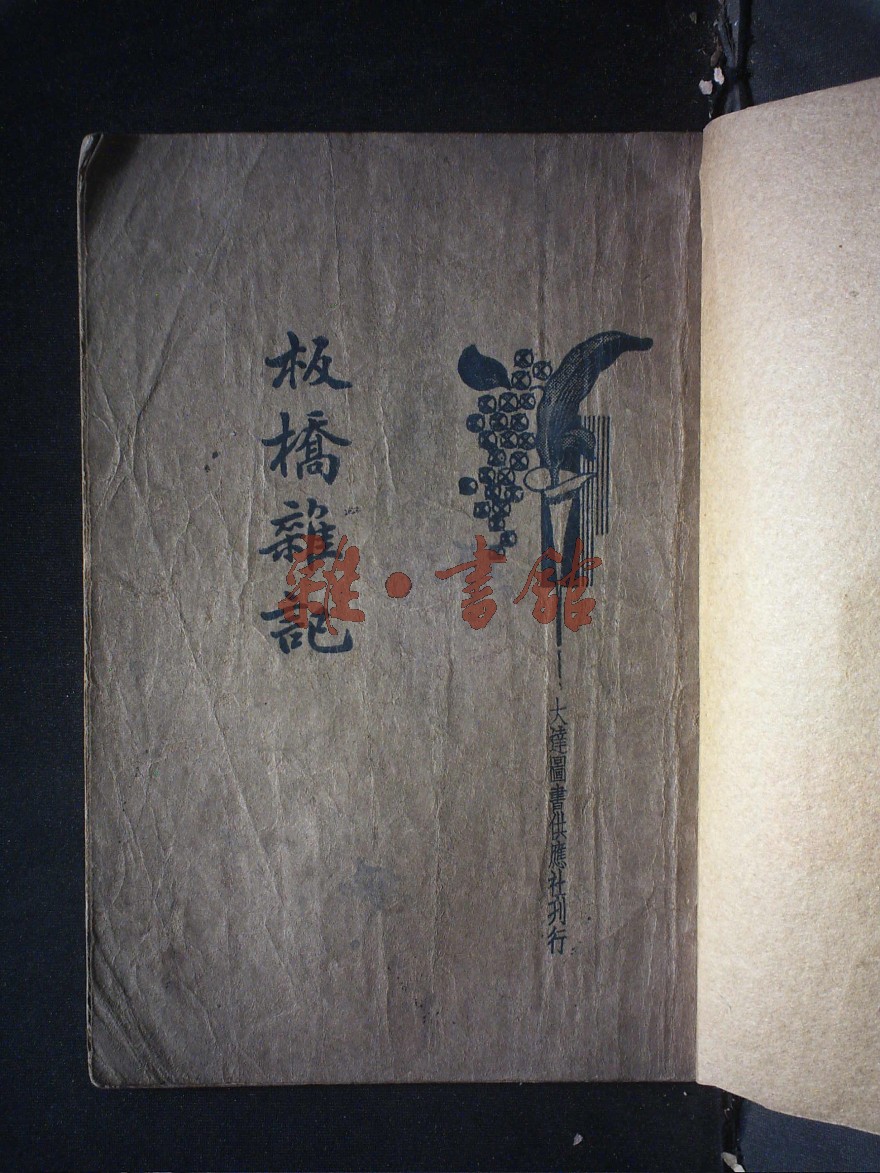 板橋雜記
雜·書館
大達圖書供應社刊行